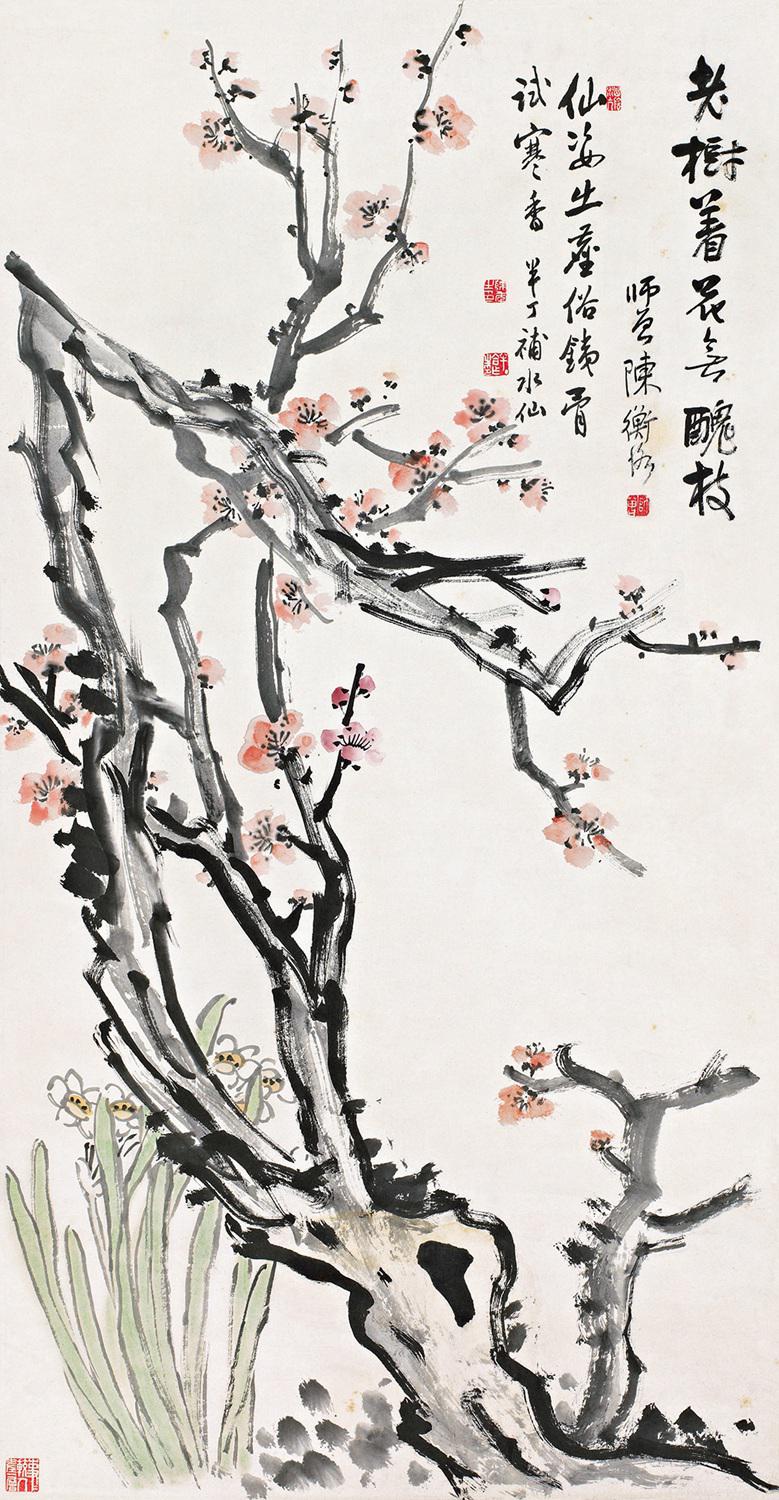 老樹著花無醜枝
師曾陳衡恪
仙姿出塵俗鐵骨
試寒香 半丁補水仙